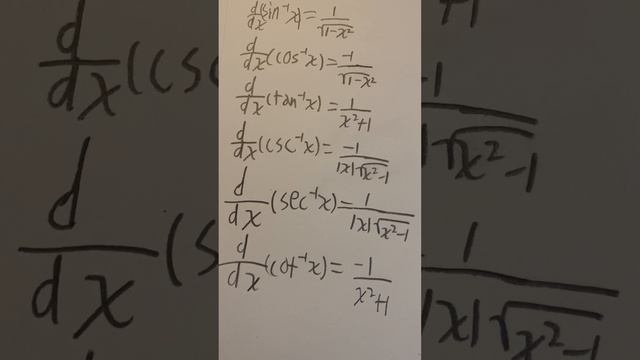 d/dx(sin⁻¹x) = 1/√(1-x²)
d/dx(cos⁻¹x) = -1/√(1-x²)
d/dx(tan⁻¹x) = 1/(x²+1)
d/dx(csc⁻¹x) = -1/(|x|√(x²-1))
d/dx(sec⁻¹x) = 1/(|x|√(x²-1))
d/dx(cot⁻¹x) = -1/(x²+1)